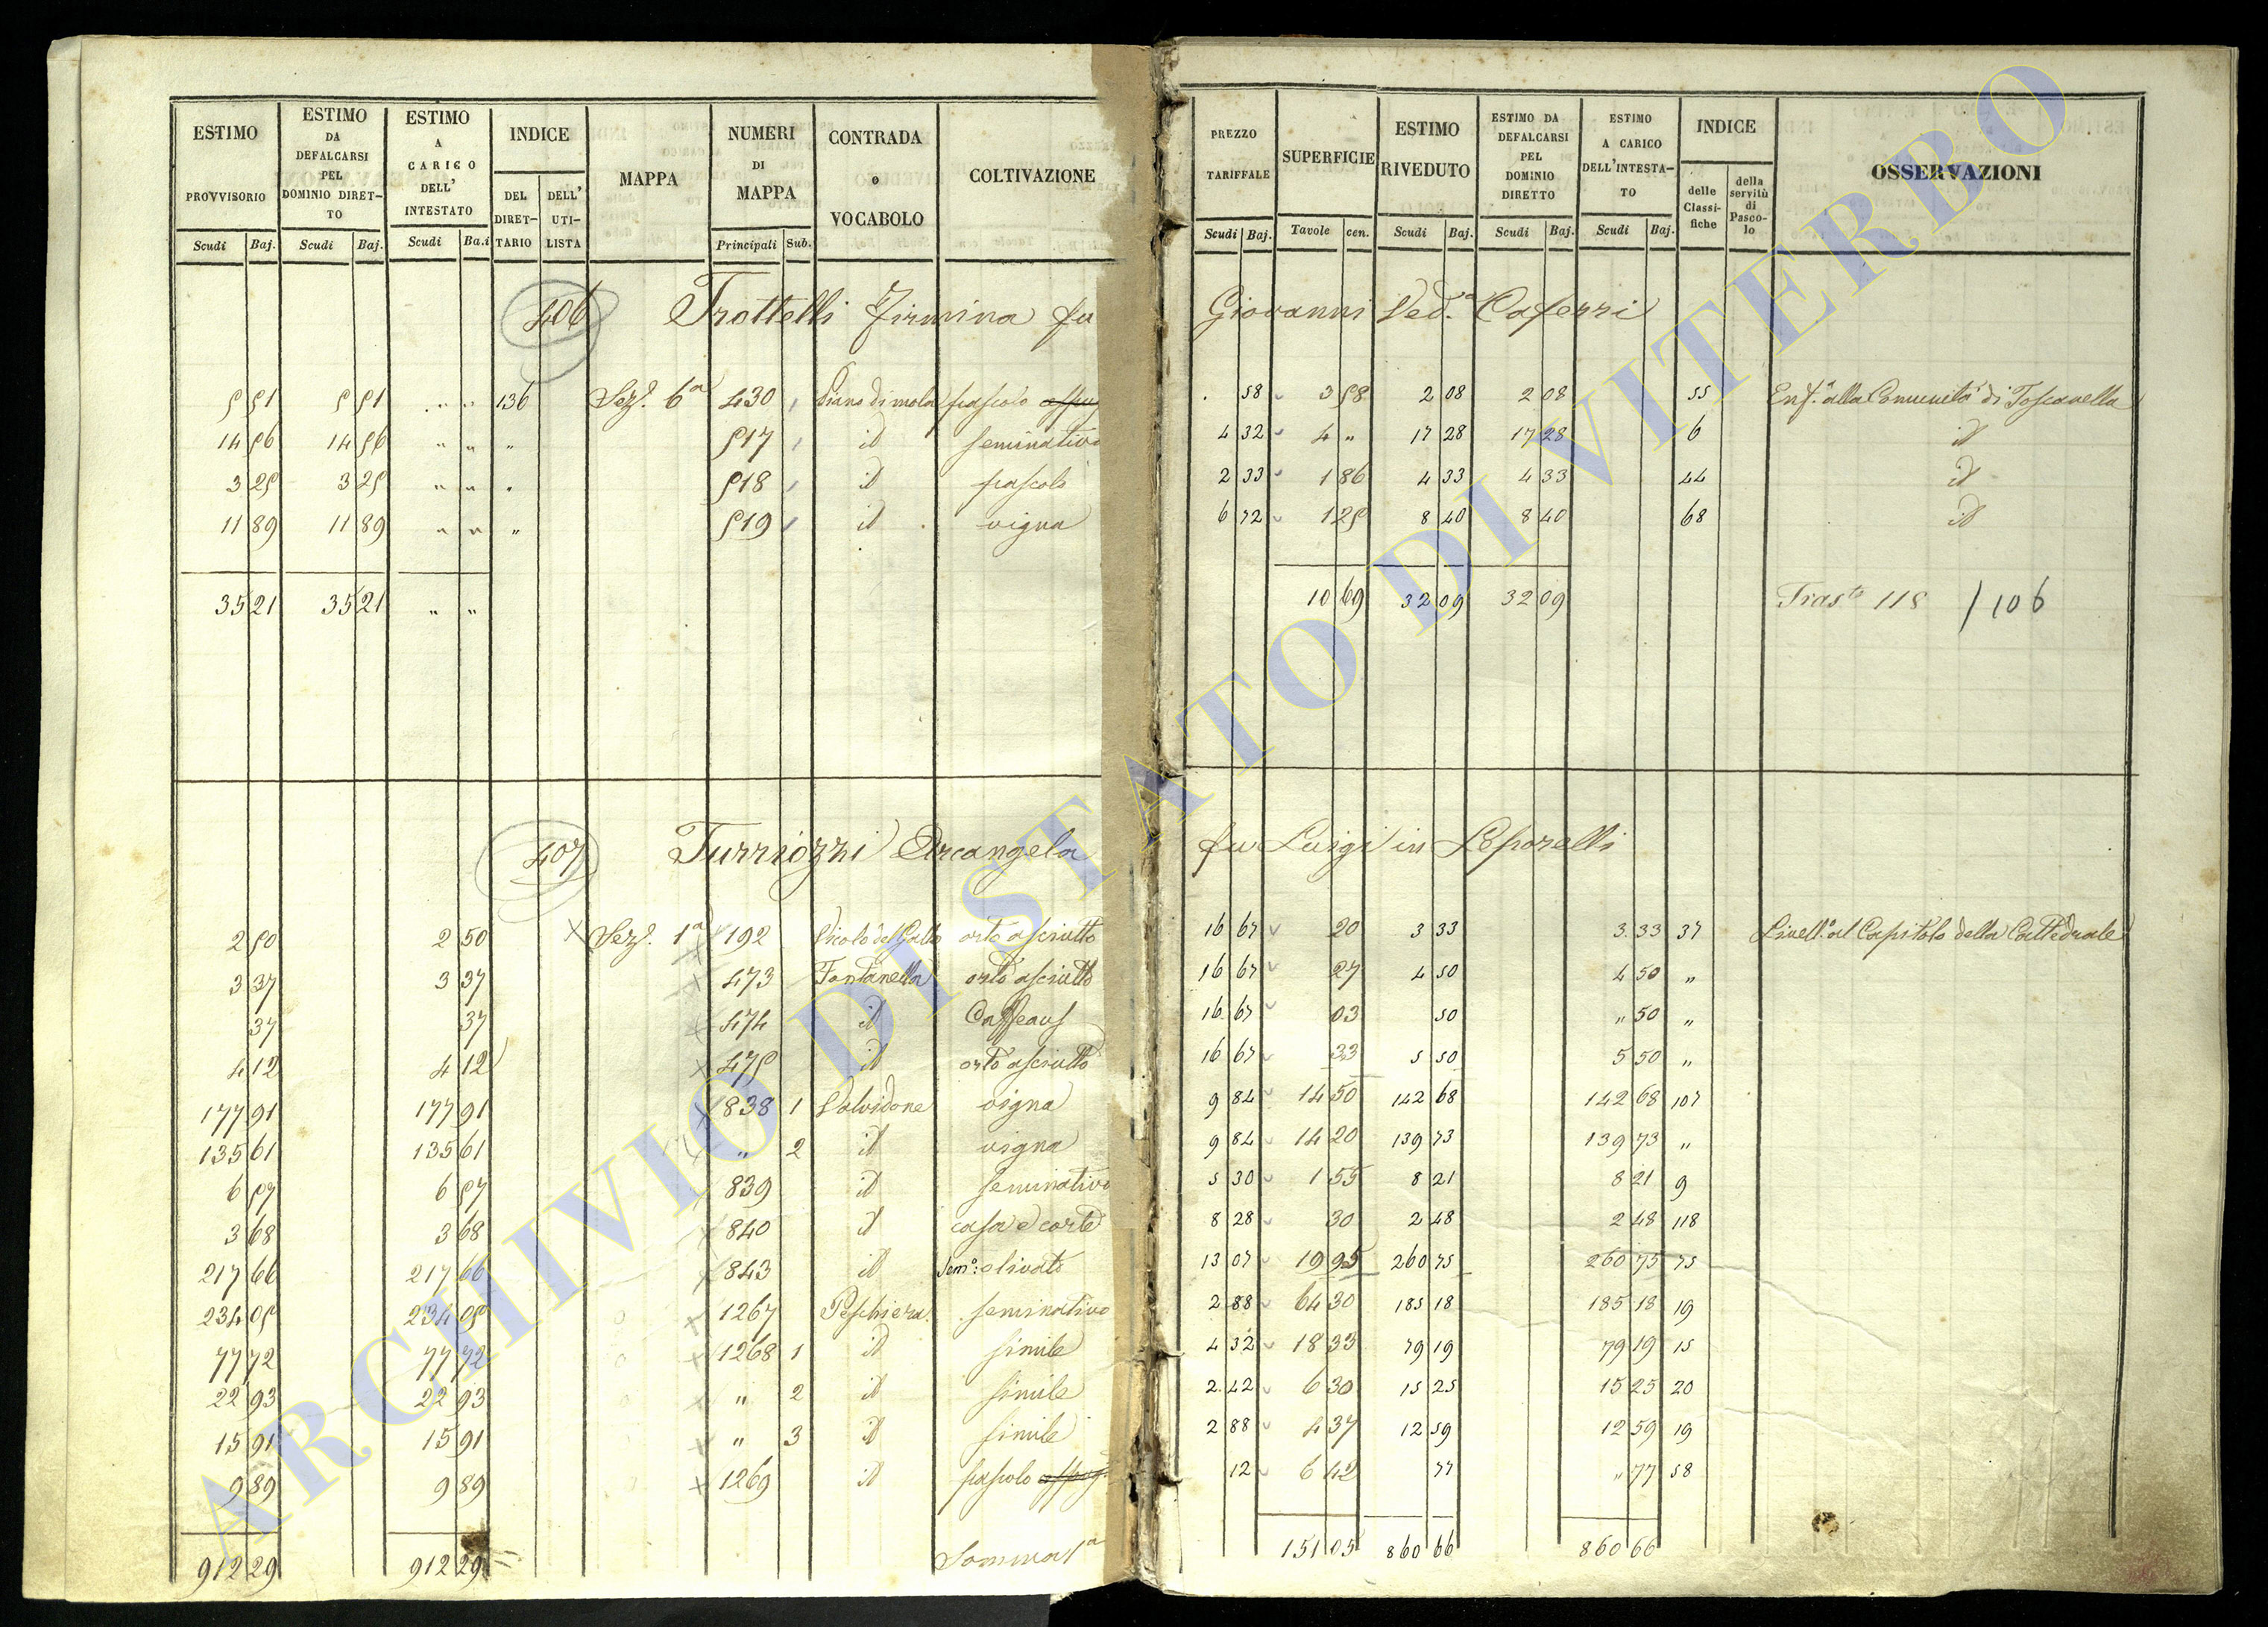 ESTIMO PROVVISORIO Scudi Baj.
ESTIMO DA DEFALCARSI PEL DOMINIO DIRETTO Scudi Baj.
ESTIMO A CARICO DELL' INTESTATO Scudi Ba.i
INDICE DEL DIRETTARIO DELL' UTILISTA
MAPPA
NUMERI DI MAPPA Principali Sub.
CONTRADA o VOCABOLO
COLTIVAZIONE
PREZZO TARIFFALE Scudi Baj.
SUPERFICIE Tavole cen.
ESTIMO RIVEDUTO Scudi Baj.
ESTIMO DA DEFALCARSI PEL DOMINIO DIRETTO Scudi Baj.
ESTIMO A CARICO DELL'INTESTATO Scudi Baj.
INDICE delle Classifiche della servitù di Pascolo
OSSERVAZIONI
406 Trottelli Firmina fu Giovanni Ved.a Caferri
5 51 5 51 " " 136 Sez. 6a 430 Piano di mola pascolo 58 3 58 2 08 2 08 55 Enf.a alla Comunità di Toscanella
14 56 14 56 " " " 517 id seminativo 4 32 4 " 17 28 17 28 6 id
3 25 3 25 " " " 518 id pascolo 2 33 1 86 4 33 4 33 44 id
11 89 11 89 " " " 519 id vigna 6 72 1 25 8 40 8 40 68 id
35 21 35 21 " " 10 69 32 09 32 09 Trasto 115 / 106
407 Turriozzi Arcangela fu Luigi in Leporelli
2 50 2 50 Sez. 1a 192 Vicolo del Gallo orto asciutto 16 67 20 3 33 3 33 37 Livell.a al Capitolo della Cattedrale
3 37 3 37 473 Fontanella orto asciutto 16 67 27 4 50 4 50 "
37 37 474 id Caffeaus 16 67 03 50 " 50 "
4 12 4 12 475 id orto asciutto 16 67 33 5 50 5 50 "
177 91 177 91 838 1 Valvidone vigna 9 84 14 50 142 68 142 68 107
135 61 135 61 " 2 id vigna 9 84 14 20 139 73 139 73 "
6 57 6 57 839 id seminativo 5 30 1 55 8 21 8 21 9
3 68 3 68 840 id casa e corte 8 28 30 2 48 2 48 118
217 66 217 66 843 id Sem.o: olivato 13 07 19 95 260 75 260 75 75
234 05 234 05 1267 Peschiera seminativo 2 88 64 30 185 18 185 18 19
77 72 77 72 1268 1 id simile 4 32 18 33 79 19 79 19 15
22 93 22 93 " 2 id simile 2 42 6 30 15 25 15 25 20
15 91 15 91 " 3 id simile 2 88 4 37 12 59 12 59 19
9 89 9 89 1269 id pascolo 12 6 42 77 " 77 58
912 29 912 29 Somma 1a 151 05 860 66 860 66
ARCHIVIO DI STATO DI VITERBO